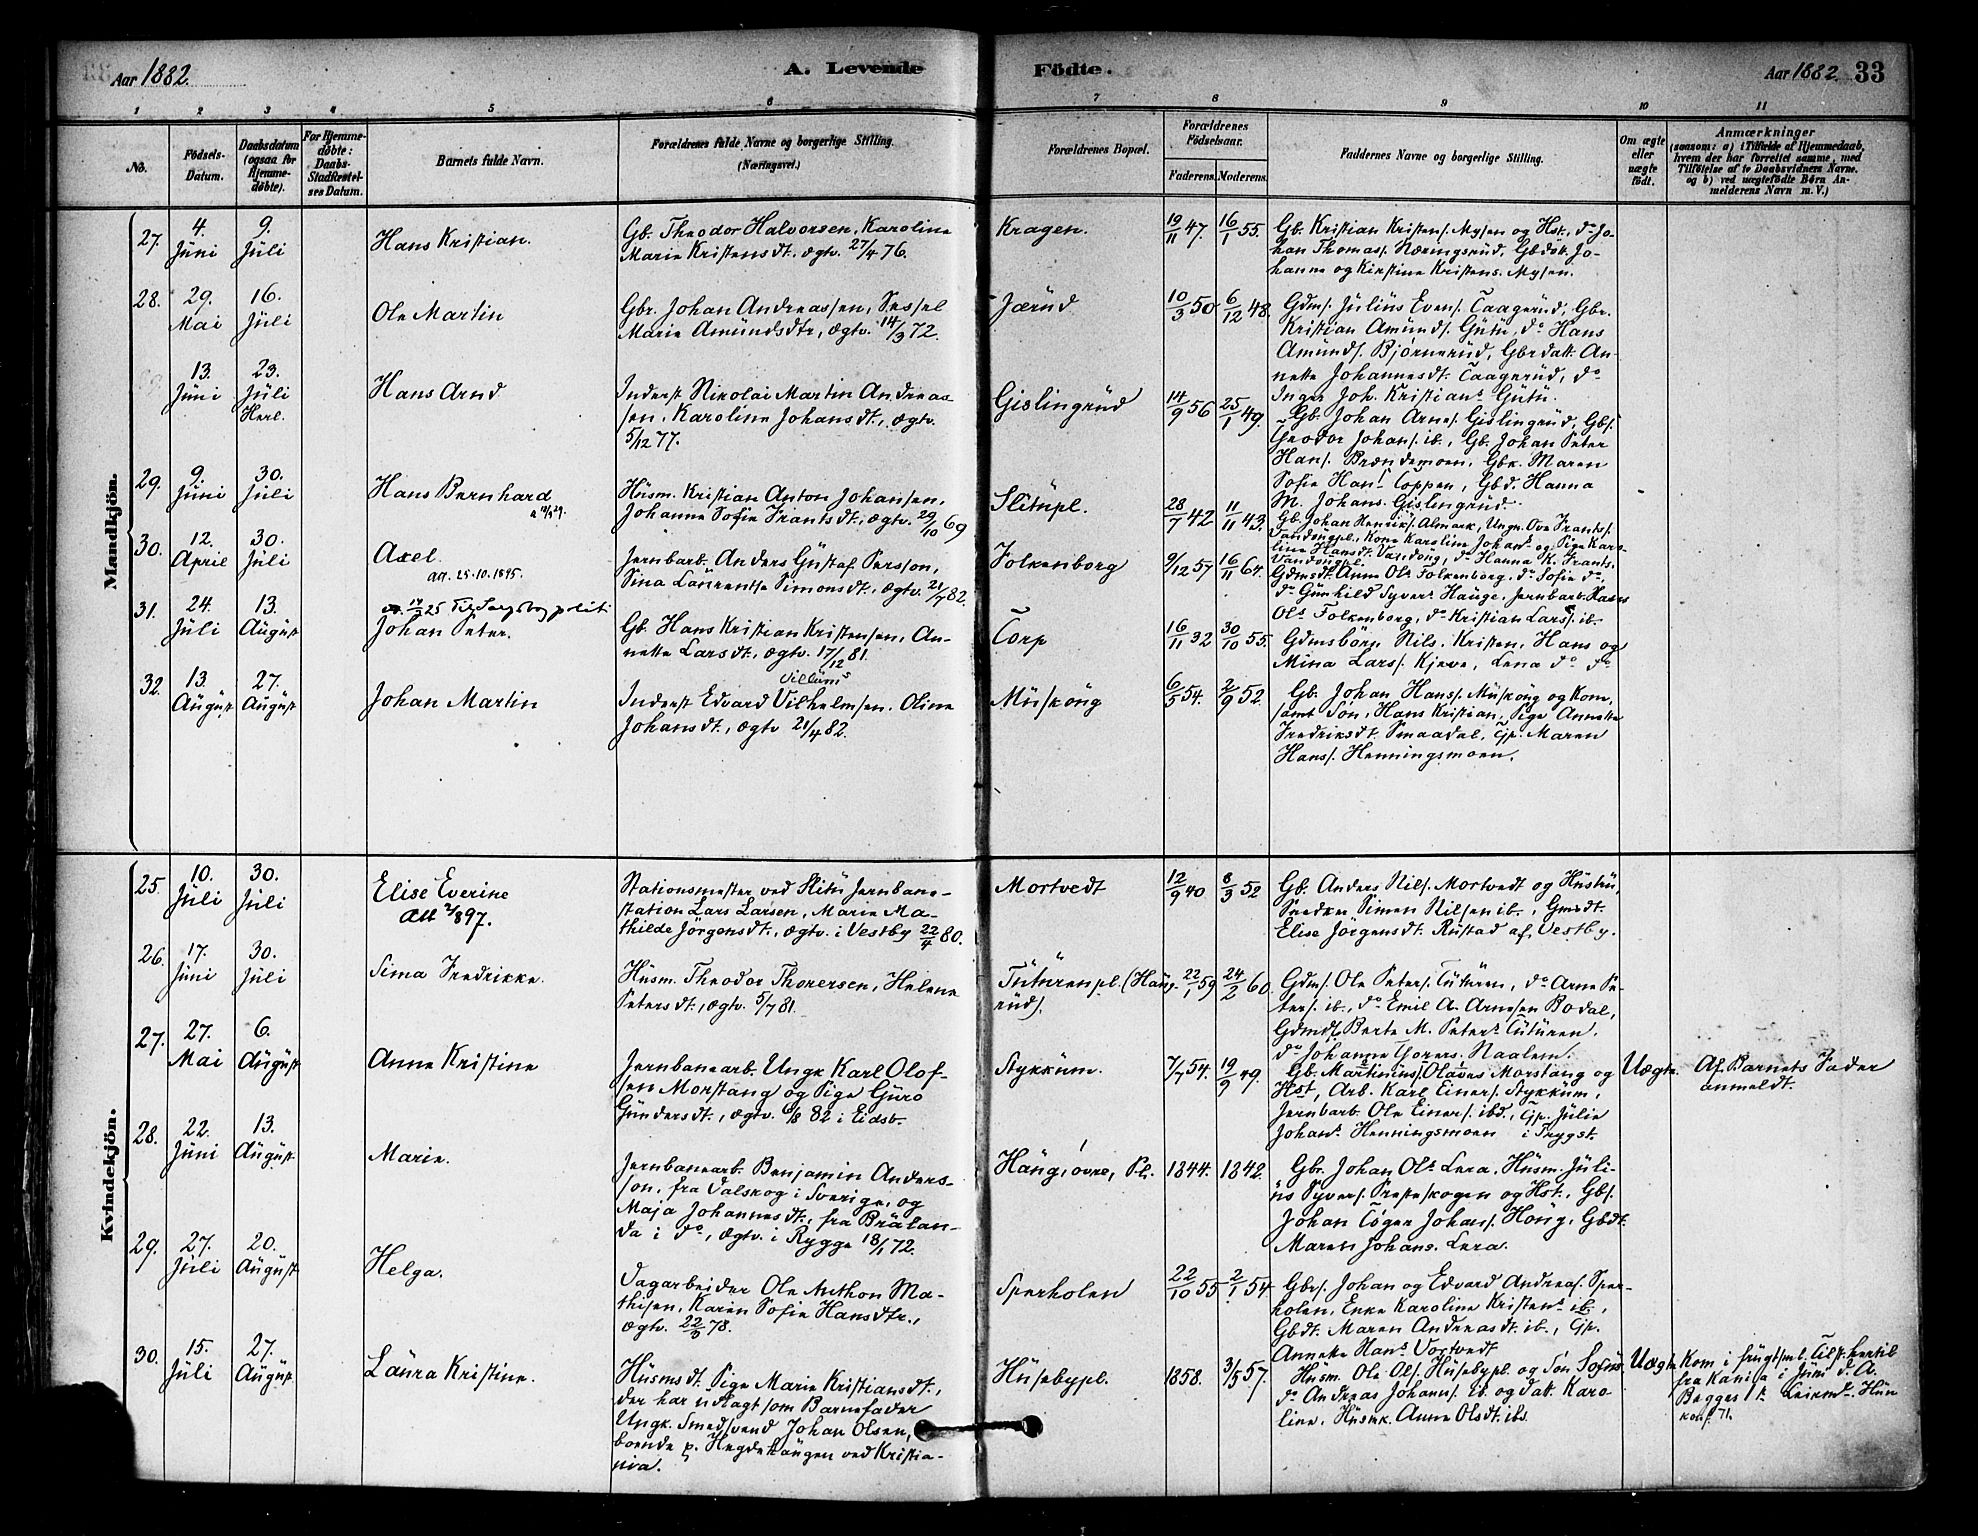 Aar 1882.
A. Levende
Fødte.
Aar 1882. 33
1 2 3 4 5 6 7 8 9 10 11
No.
Fødsels-
Datum.
Daabsdatum
(ogsaa for
Hjemme-
døbte).
For Hjemme-
døbte:
Daabs-
Stadfæstel-
ses Datum.
Barnets fulde Navn.
Forældrenes fulde Navne og borgerlige Stilling.
(Næringsvei.)
Forældrenes Bopæl.
Forældrenes
Fødselsaar.
Faderens. Moderens.
Faddernes Navne og borgerlige Stilling.
Om ægte
eller
uægte
født.
Anmærkninger
(saasom: a) i Tilfælde af Hjemmedaab,
hvem der har forrettet samme, med
Tilføielse af to Daabsvidners Navne.
og b) ved uægtefødte Børn An-
melderens Navn m. V.)
Mandkjön.
27.
4.
Juni
9.
Juli
Hans Kristian.
Gb. Theodor Halvorsen, Karoline
Marie Kristensdt. ægtv. 27/4 76.
Kragen.
19/11 47.
16/1 55.
Gb. Kristian Kristens. Mysen og Hst., do Jo-
han Thomass. Næringsrud, Gbdsk. Jo-
hanne og Kirstine Kristens. Mysen.
28.
29.
Mai
16.
Juli
Ole Martin
Gbr. Johan Andreassen, Sessel
Marie Amundsdtr, ægtv. 14/3 72.
Jærud
10/3 50
6/12 48.
Gdms. Julius Evens. Taagerud, Gbr.
Kristian Amunds. Gutu, do Hans
Amunds. Bjørnerud, Gbrdatt. An-
nette Johannesdt. Taagerud, do
Inger Joh. Kristians. Gutu.
13.
Juni
23.
Juli
Herl.
Hans Arnd
Inderst Nikolai Martin Andreas-
sen, Karoline Johansdt., ægtv.
5/12 77.
Gislingrud
14/9 56
25/1 49.
Gb. Johan Arnes. Gislingrud, Gbs.
Teodor Johans. ib., Gb. Johan Peter
Hans. Brændemoen, Gbk. Maren
Sofie Hans. Toppen, Gbd. Hanna
M. Johans. Gislingrud.
29.
9.
Juni
30.
Juli
Hans Bernhard
Husm. Kristian Anton Johansen,
Johanne Sofie Frantsdt., ægtv. 29/10 69
Slitupl.
28/7 42
11/11 43.
Gb. Johan Henriks. Almark, Ungk. Ove Frants.
Vandungpl., Kone Karoline Johans. og Pige Karo-
line Hansdt. Vandung, do Hanna K. Frants.
Vandungpl.
30.
12.
April
30.
Juli
Axel.
att. 25.10.1895.
Jernbarb. Anders Gustaf Persson,
Sina Laurentse Simonsdt., ægtv. 21/7 82.
Folkenborg
9/12 57
16/11 64.
Gdmsdt. Anne Ols. Folkenborg, do Sofie do,
do Gunhild Syvers. Hauge, Jernbarb. Hans
Ols. Folkenborg, do Kristian Lars. ib.
31.
24.
Juli
13.
August
Johan Peter.
Gb. Hans Kristian Kristensen, An-
nette Larsdt., ægtv. 17/12 81.
Torp
16/11 32
30/10 55.
Gdmsbörn Nils, Kristen, Hans og
Mina Lars. Kjeve, Lena do do
32.
13.
August
27.
August
Johan Martin
Villums
Inderst Edvard Vilhelmsen, Oline
Johansdt., ægtv 21/4 82.
Musköng
6/5 54.
2/9 52.
Gb. Johan Hans. Musköng og Kone,
samt Søn, Hans Kristian, Pige Annette
Fredriksdt. Smaadal, Gp. Maren
Hans. Henningsmoen.
Kvindekjön.
25.
10.
Juli
30.
Juli
Elise Everine
Att 2/8 97.
Stationsmester ved Slitu Jernbane-
station Lars Larsen, Marie Ma-
thilde Jörgensdt., ægtv. i Vestby 22/4 80.
Mortvedt
12/9 40
8/3 52
Gb. Anders Nils. Mortvedt og Hustru,
Snedker Simen Nilsen ib., Gmsdt.
Elise Jörgensdt. Rustad af Vestby.
26.
17.
Juni
30.
Juli
Sima Fredrikke.
Husm. Theodor Thorersen, Helene
Petersdt., ægtv. 5/7 81.
Tuturenpl. (Haug-
rud).
22/1 59
24/2 60.
Gdms. Ole Peters. Tuturen, do Arne Pe-
ters. ib., do Emil A. Arnesen Bodal,
Gdmdt. Berte M. Peters. Tuturen,
do Johanne Torers. Naalem.
27.
27.
Mai
6.
August
Anna Kristine
Jernbanearb. Ungk Karl Olof-
sen Morstang og Pige Guro
Gundersdt., ægtv. 6/8 82 i Eidsb.
Stykkum.
7/7 54.
19/9 49.
Gb. Martinius Olaves Morstang og
Hst, Arb. Karl Einers. Stykkum,
Jernbarb. Ole Einers. ibd., Gp. Julie
Johans. Henningsmoen i Trygst.
Uægte.
Af Barnets Fader
anmeldt.
28.
22.
Juni
13.
August
Marie.
Jernbanearb. Benjamin Anders-
son, fra Valskog i Sverige, og
Maja Johannesdt., fra Brälan-
da i do, ægtv. i Rygge 18/1 72.
Haug, övre, Pl.
1844.
1842.
Gbr. Johan Ols. Lera, Husm. Juli-
us Syvers. Presteskogen og Hst., Gbs.
Johan Töger Johans. Höng, Gbdt.
Maren Johans. Lera.
29.
27.
Juli
20.
August
Helga.
Vagarbeider Ole Anthon Ma-
thisen, Karen Sofie Hansdtr.,
ægtv. 22/3 78.
Sperholen
22/10 55
2/1 54
Gbrs. Johan og Edvard Andreas. Sper-
holen, Enke Karoline Kristens. ib.,
Gbdt. Maren Andreasdt. ib., Gp.
Anneke Hans. Vortvedt
30.
15.
Juli
27.
August
Laura Kristine.
Husmsdt. Pige Marie Kristiansdt.,
der har udlagt som Barnefader
Ungk. Smedsvend Johan Olsen,
boende p. Hegdehaugen ved Kristia-
nia.
Husebypl.
1858.
3/5 57.
Husm. Ole Ols. Husebypl. og Søn Sofus
do Andreas Johanns. ib og datt. Karo
line, Husmk. Anne Olsdt. ibs.
Uægte
Kom i frugtsml. Tilst. hertil
fra Kania i Juni d. A.
Begges 1ste Leierm. Hun
konf. 71.